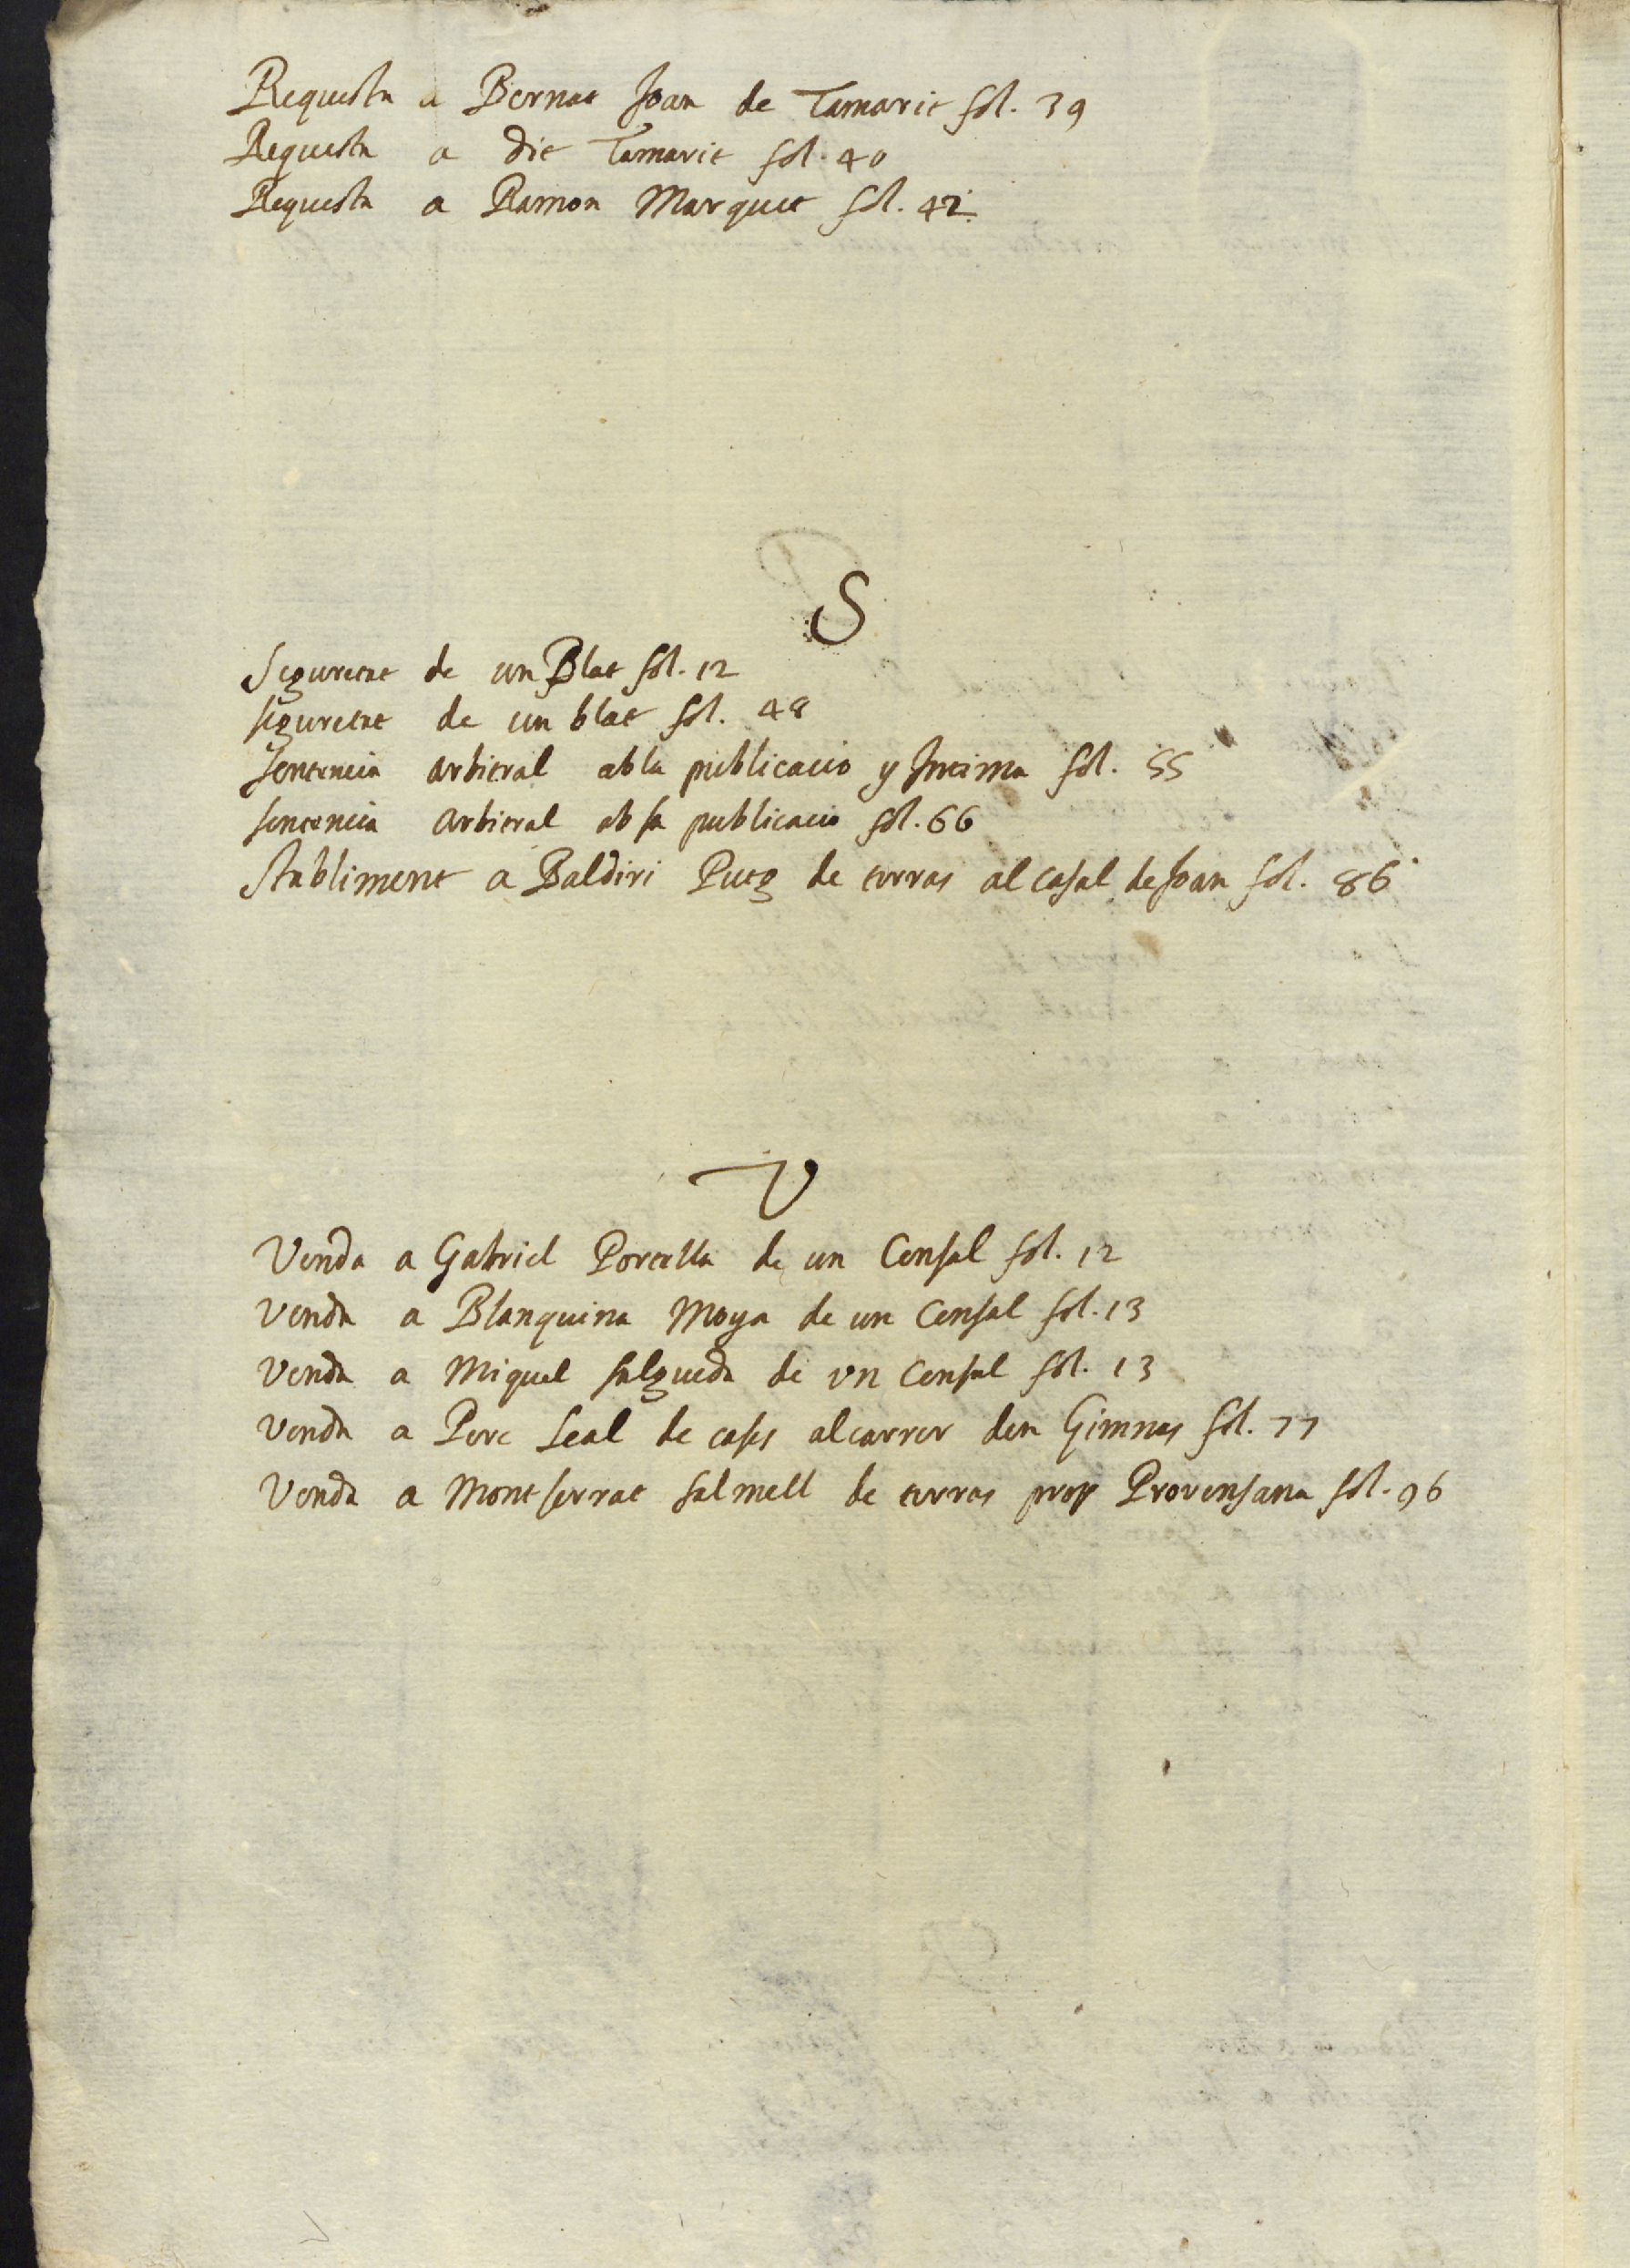 Requesta a Bernat Joan de Tamarit fol. 39
Requesta a dit Tamarit fol. 40
Requesta a Ramon Marquet fol. 42.
S
Seguretat de un Blat fol. 12
seguretat de un blat fol. 48
sentencia arbitral ab la publicacio y Intima fol. 55
sentencia arbitral ab sa publicacio fol. 66
Stabliment a Baldiri Puig de terras al casal de Joan fol. 86
V
Venda a Gabriel Porcella de un Censal fol. 12
Venda a Blanquina Moya de un Censal fol. 13
Venda a Miquel salgueda de vn Censal fol. 13
Venda a Pere Leal de cases al carrer den Gimnas fol. 77
Venda a Montserrat salmell de terras prop Provensana fol. 96